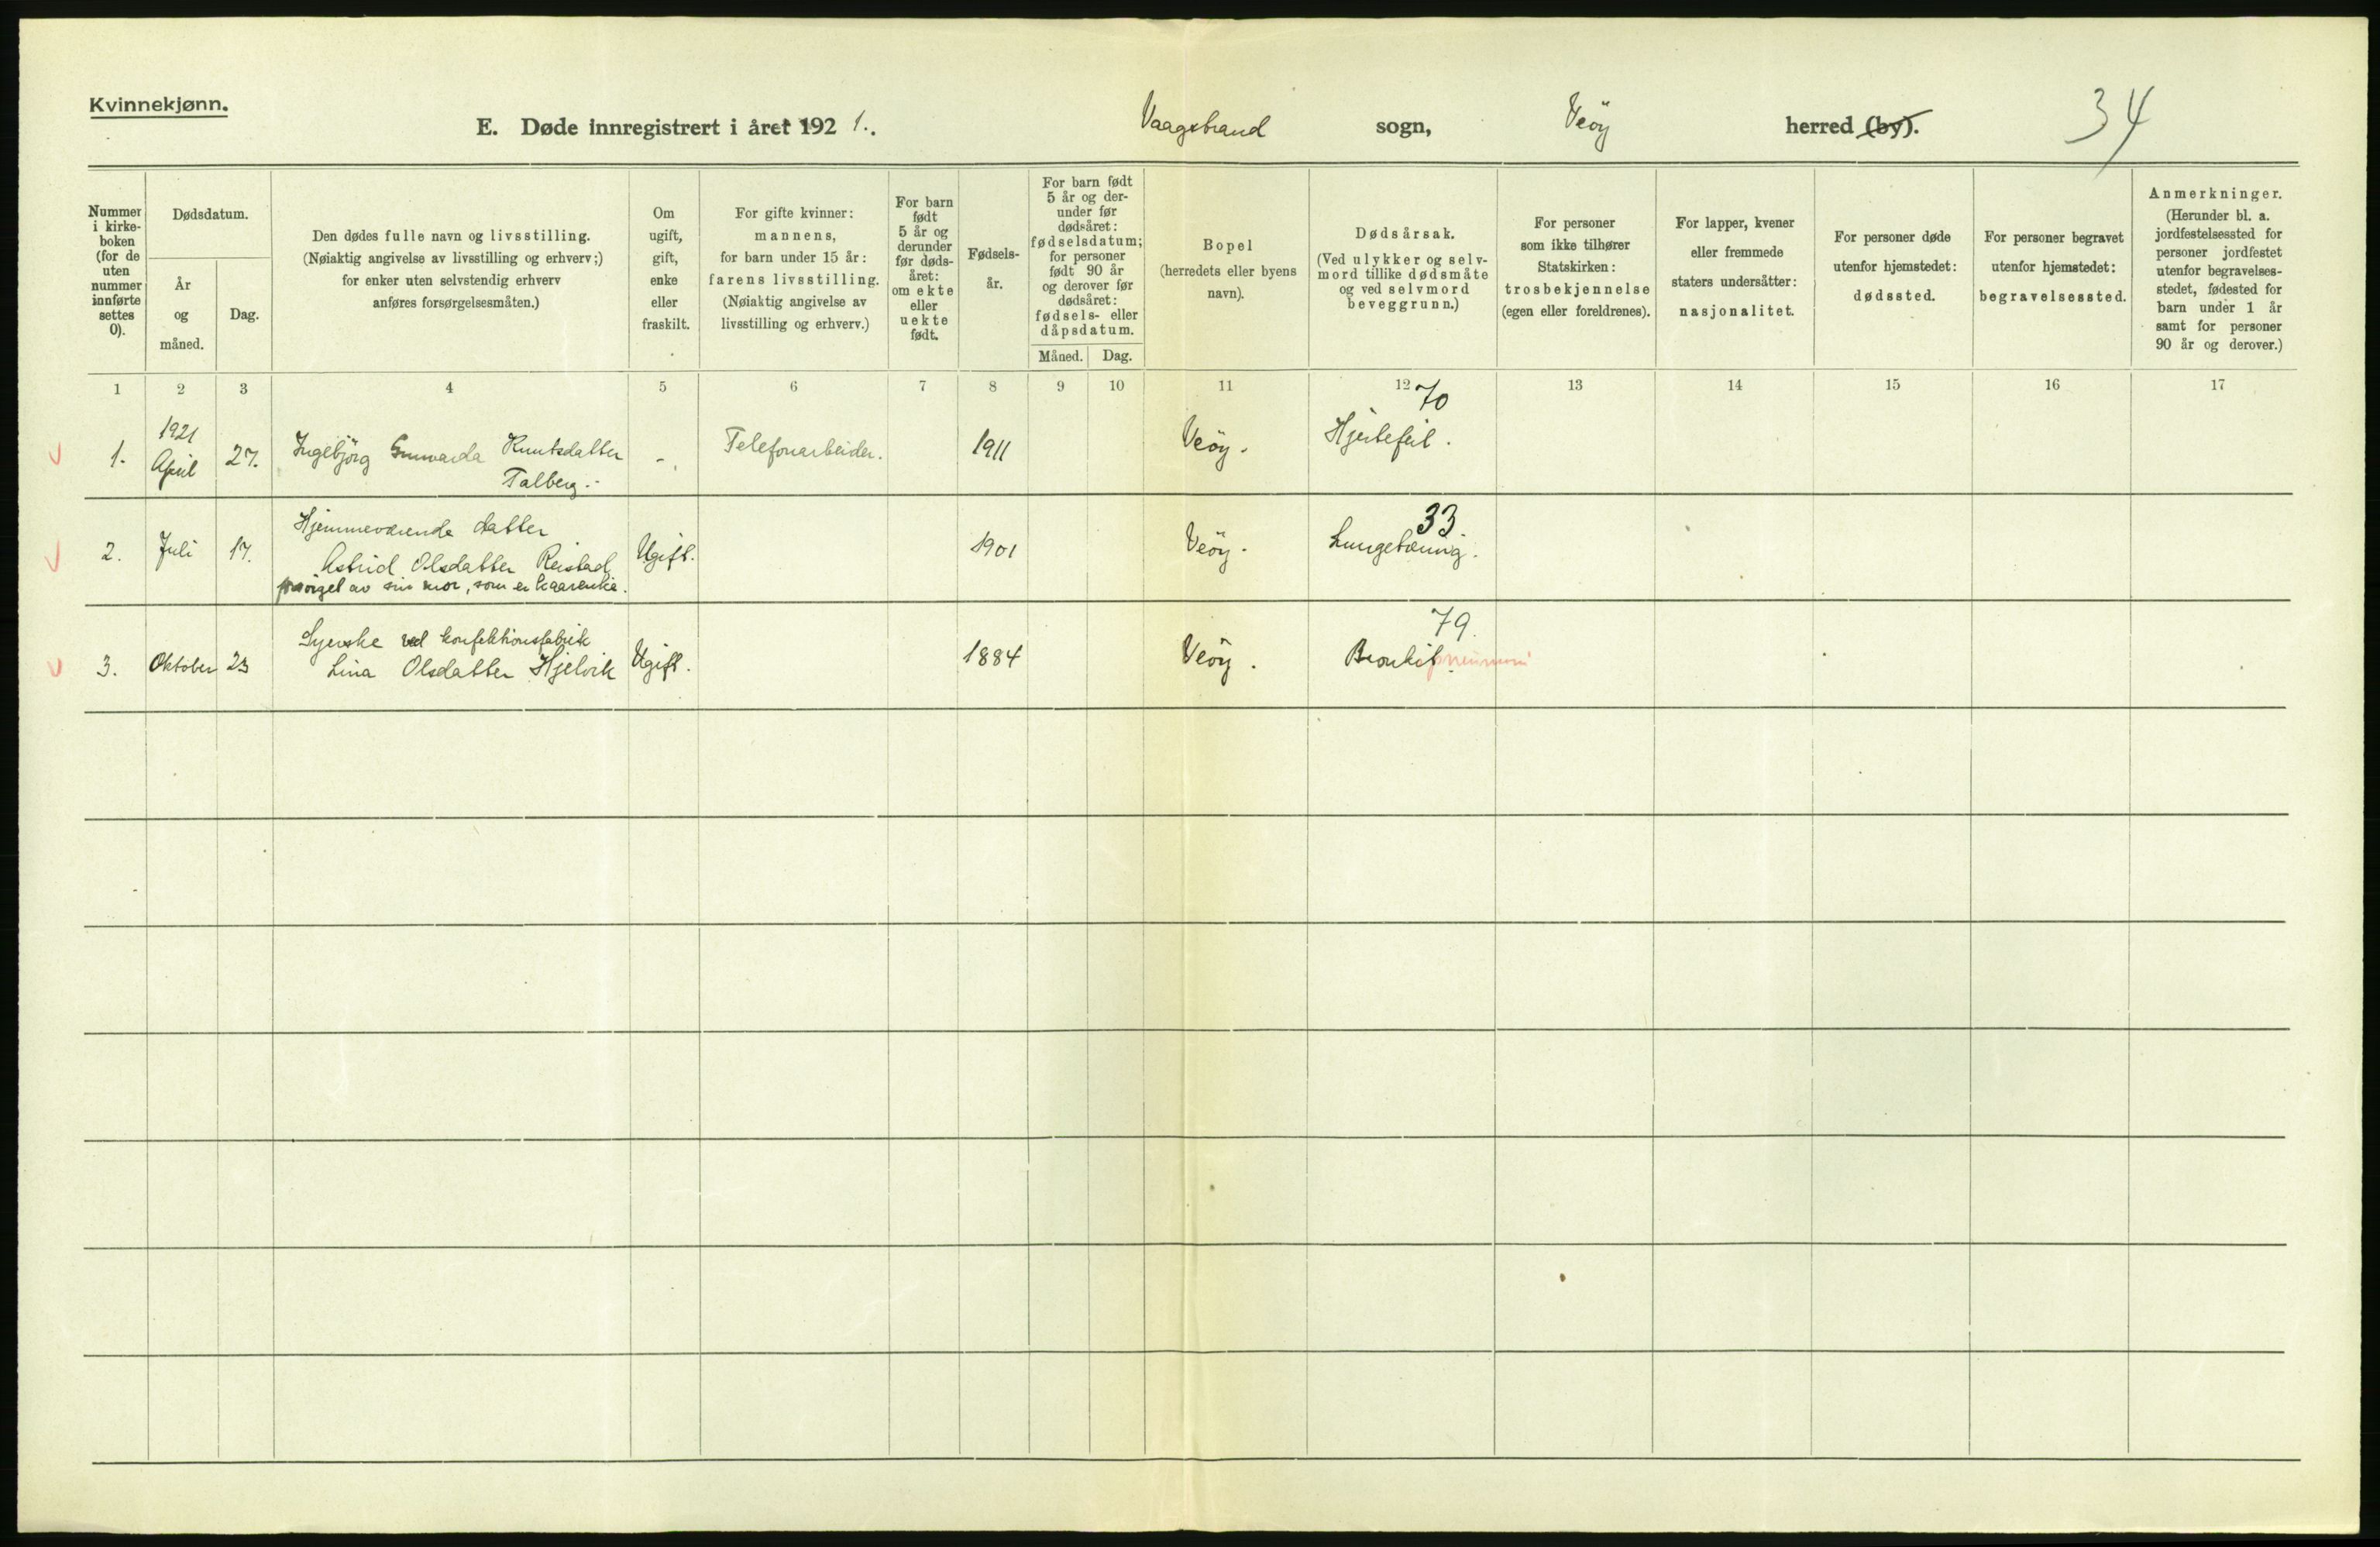 Kvinnekjønn.
E. Døde innregistrert i året 1921. Vaagstrand sogn, Veöy herred (by). 34
Nummer i kirke-boken (for de uten nummer innførte settes 0).
Dødsdatum.
År og måned.
Dag.
Den dødes fulle navn og livsstilling.
(Nøiaktig angivelse av livsstilling og erhverv;)
for enker uten selvstendig erhverv
anføres forsørgelsesmåten.)
Om ugift, gift, enke eller fraskilt.
For gifte kvinner:
mannens,
for barn under 15 år:
farens livsstilling.
(Nøiaktig angivelse av
livsstilling og erhverv.)
For barn født 5 år og derunder før døds-året: om ekte eller uekte født.
Fødsels-år.
For barn født 5 år og der-under før dødsåret: fødselsdatum; for personer født 90 år og derover før dødsåret: fødsels- eller dåpsdatum.
Måned. Dag.
Bopel
(herredets eller byens
navn).
Dødsårsak.
(Ved ulykker og selv-
mord tillike dødsmåte
og ved selvmord
beveggrunn.)
For personer
som ikke tilhører
Statskirken:
trosbekjennelse
(egen eller foreldrenes).
For lapper, kvener
eller fremmede
staters undersåtter:
nasjonalitet.
For personer døde
utenfor hjemstedet:
dødssted.
For personer begravet
utenfor hjemstedet:
begravelsessted.
Anmerkninger.
(Herunder bl. a.
jordfestelsessted for
personer jordfestet
utenfor begravelses-
stedet, fødested for
barn under 1 år
samt for personer
90 år og derover.)
1 2 3 4 5 6 7 8 9 10 11 12 13 14 15 16 17
70
1921
1. April 27. Ingebjörg Gunvarda Knutsdatter - Telefonarbeider. 1911 Veöy. Hjertefeil.
Talberg.
Hjemmeværende datter 33.
2. Juli 17. Astrid Olsdatter Reistad Ugift. 1901 Veöy. Lungebetænd.
forsörget av sin mor, som er kaarenke.
Syerske ved konfektionsfabrik 79.
3. Oktober 23 Lina Olsdatter Hjelvik Ugift. 1884 Veöy. Bronkit pneumoni